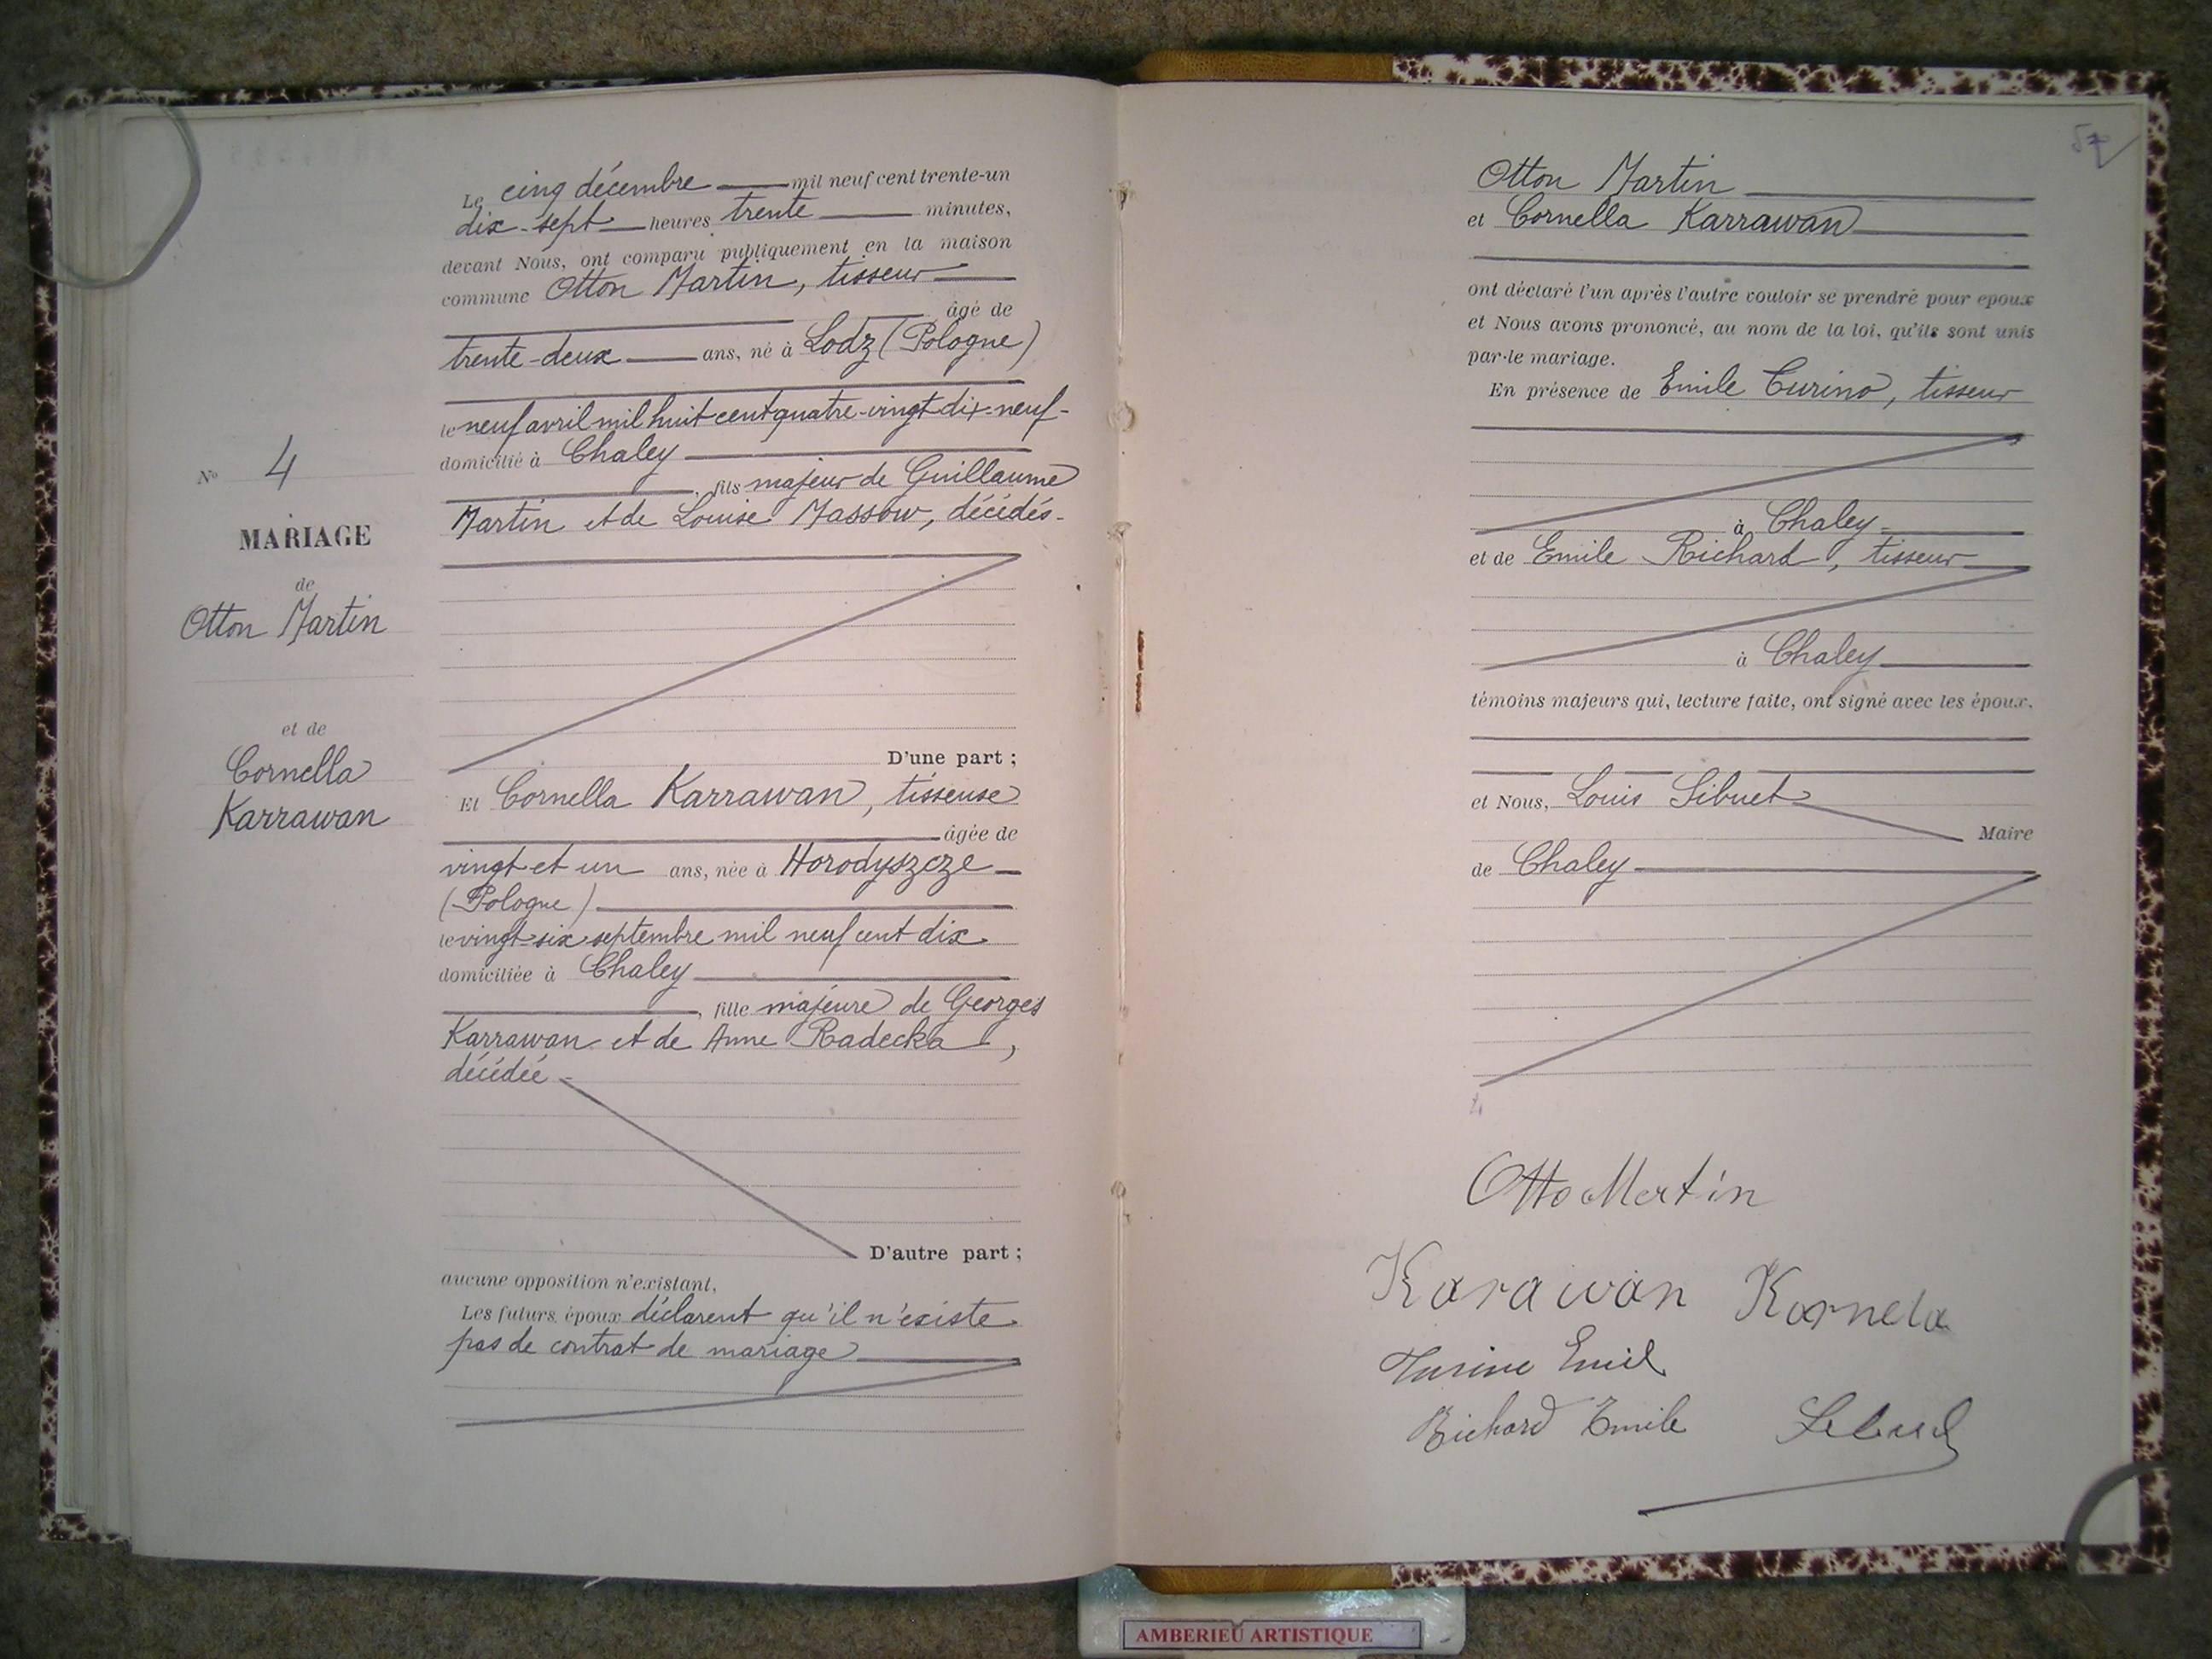 Le cinq décembre mil neuf cent trente-un
dix-sept heures trente minutes,
devant Nous, ont comparu publiquement en la maison
commune Otton Martin, tisseur
âgé de
trente-deux ans, né à Lodz (Pologne)
le neuf avril mil huit cent quatre-vingt dix-neuf-
domicilié à Chaley
, fils majeur de Guillaume
Martin et de Louise Massow, décédés-
D'une part ;
Nº 4
MARIAGE
de
Otton Martin
et de
Cornella
Karrawan
Et Cornella Karrawan, tisseuse
âgée de
vingt et un ans, née à Horodyszcze
(Pologne)
le vingt-six septembre mil neuf cent dix
domiciliée à Chaley
, fille majeure de Georges
Karrawan et de Anne Radecka,
décédée-
D'autre part ;
aucune opposition n'existant,
Les futurs époux déclarent qu'il n'existe
pas de contrat de mariage
57
Otton Martin
et Cornella Karrawan
ont déclaré l'un après l'autre vouloir se prendre pour epoux
et Nous avons prononcé, au nom de la loi, qu'ils sont unis
par le mariage.
En présence de Emile Turino, tisseur
à Chaley-
et de Emile Richard, tisseur
à Chaley
témoins majeurs qui, lecture faite, ont signé avec les époux.
et Nous, Louis Sibuet
Maire
de Chaley
Otto Mertin
Karawan Kornela
Turino Emil
Richard Emile Sibuet
AMBERIEU ARTISTIQUE